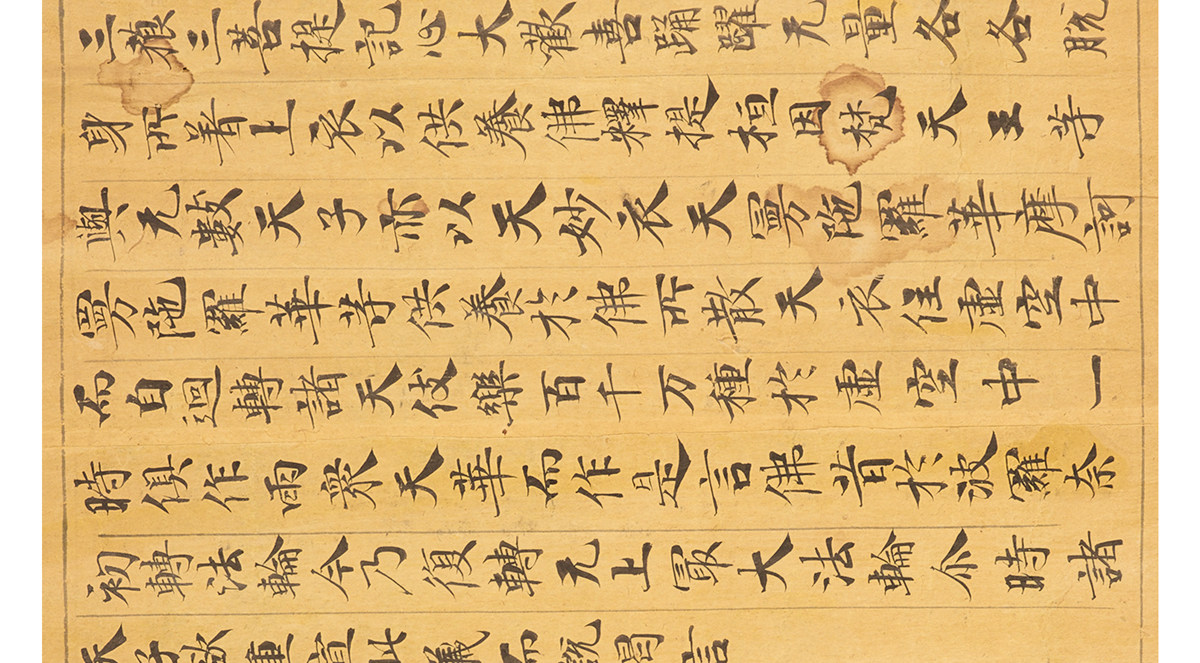 三藐三菩提記心大歡喜踊躍无量各各脫
身所著上衣以供養佛釋提桓因梵天王等
與无數天子亦以天妙衣天曼陁羅華摩訶
曼陁羅華等供養於佛所散天衣住虛空中
而自迴轉諸天伎樂百千万種於虛空中一
時俱作雨衆天華而作是言佛昔於波羅奈
初轉法輪今乃復轉无上最大法輪尒時諸
天子欲重宣此義而說偈言